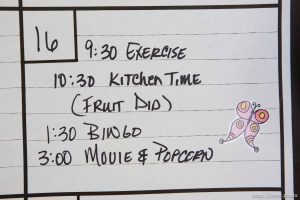 16
9:30 EXERCISE
10:30 KITCHEN TIME
(FRUIT DIP)
1:30 BINGO
3:00 MOVIE & POPCORN